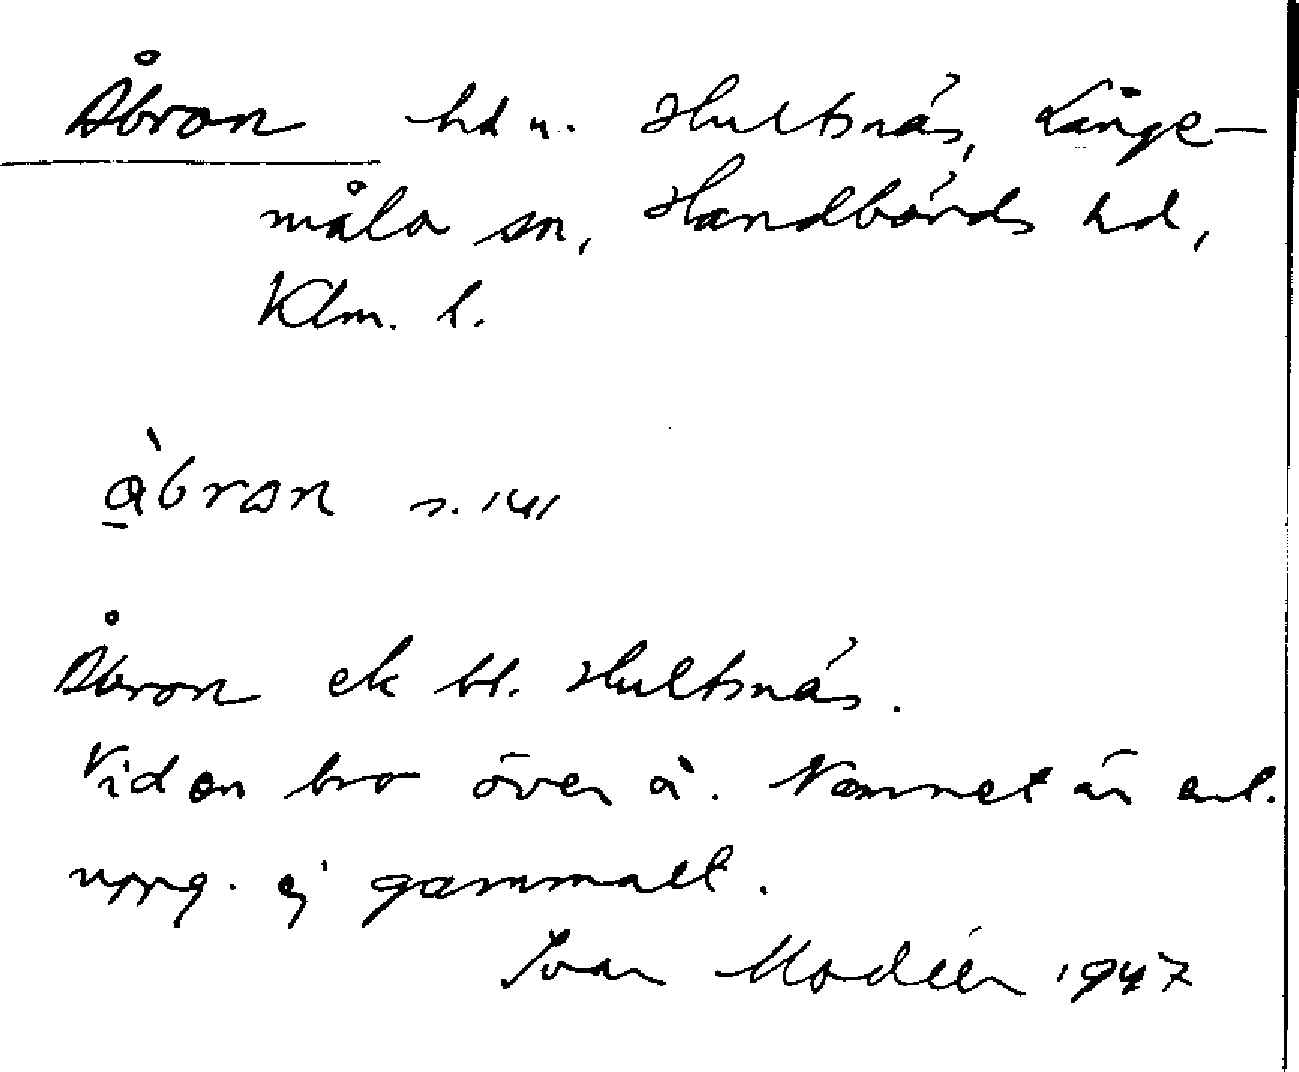 Åbron hd u. Hultsnäs, Långe-
måla sn, Handbörds hd,
Klm. l.
åbron s. 141
Åbron ek bl. Hultsnäs.
Vid en bro över å. Namnet är enl.
uppg. ej gammalt.
Ivar Modéer 1947